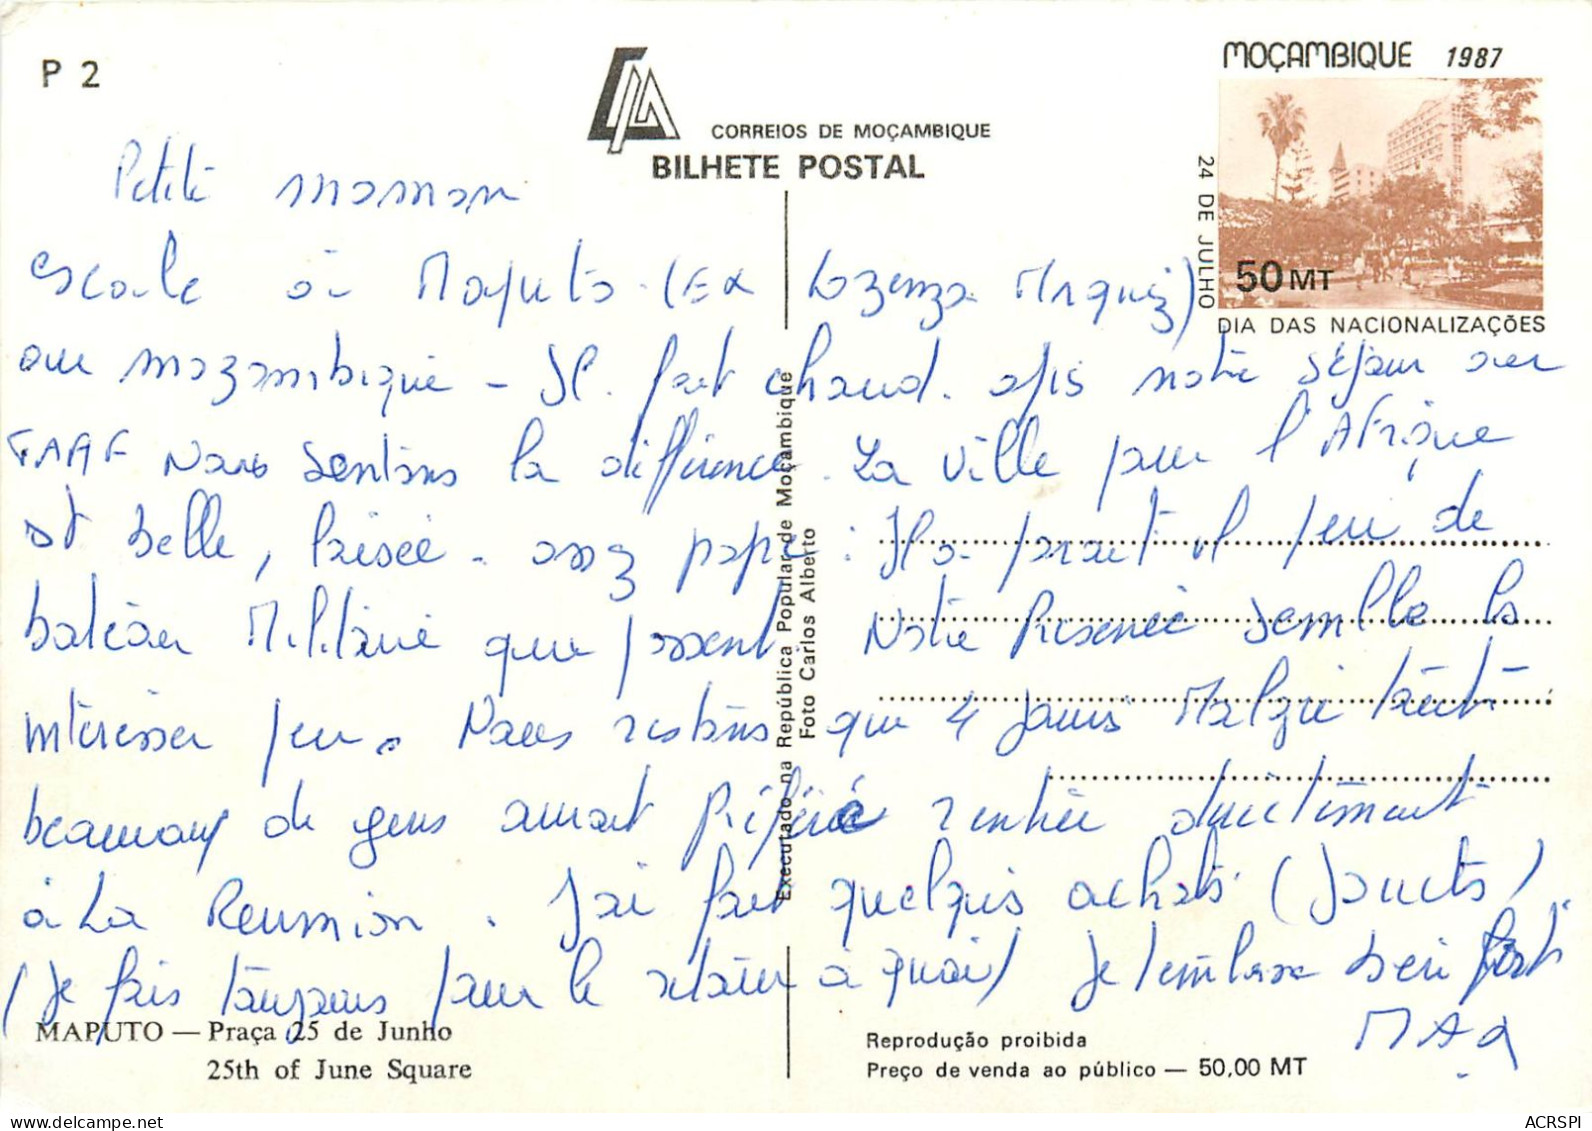 P 2
MOÇAMBIQUE 1987
CORREIOS DE MOÇAMBIQUE
BILHETE POSTAL
24 DE JULHO
50 MT
DIA DAS NACIONALIZAÇÕES
Petite maman
escale à Maputo (Ex Lozenzo Marquez)
au mozambique - Il fait chaud. après notre séjour aux
TAAF Nous sentons la différence. La ville pour l'Afrique
est belle, boisée - assez propre : Il a parait il peu de
bateau Militaire que passent Notre Présence semble les
intéresser peu. Nous restons que 4 jours Malgré tout
beaucoup de gens aurait préféré rentrer directement
à La Reunion. J'ai fait quelques achats (Jouets)
(Je fais toujours pour le retour à quai) Je t'embrasse bien fort
MAPUTO — Praça 25 de Junho
25th of June Square
Executado na República Popular de Moçambique
Foto Carlos Alberto
Reprodução proibida
Preço de venda ao público — 50,00 MT
ACRSPI